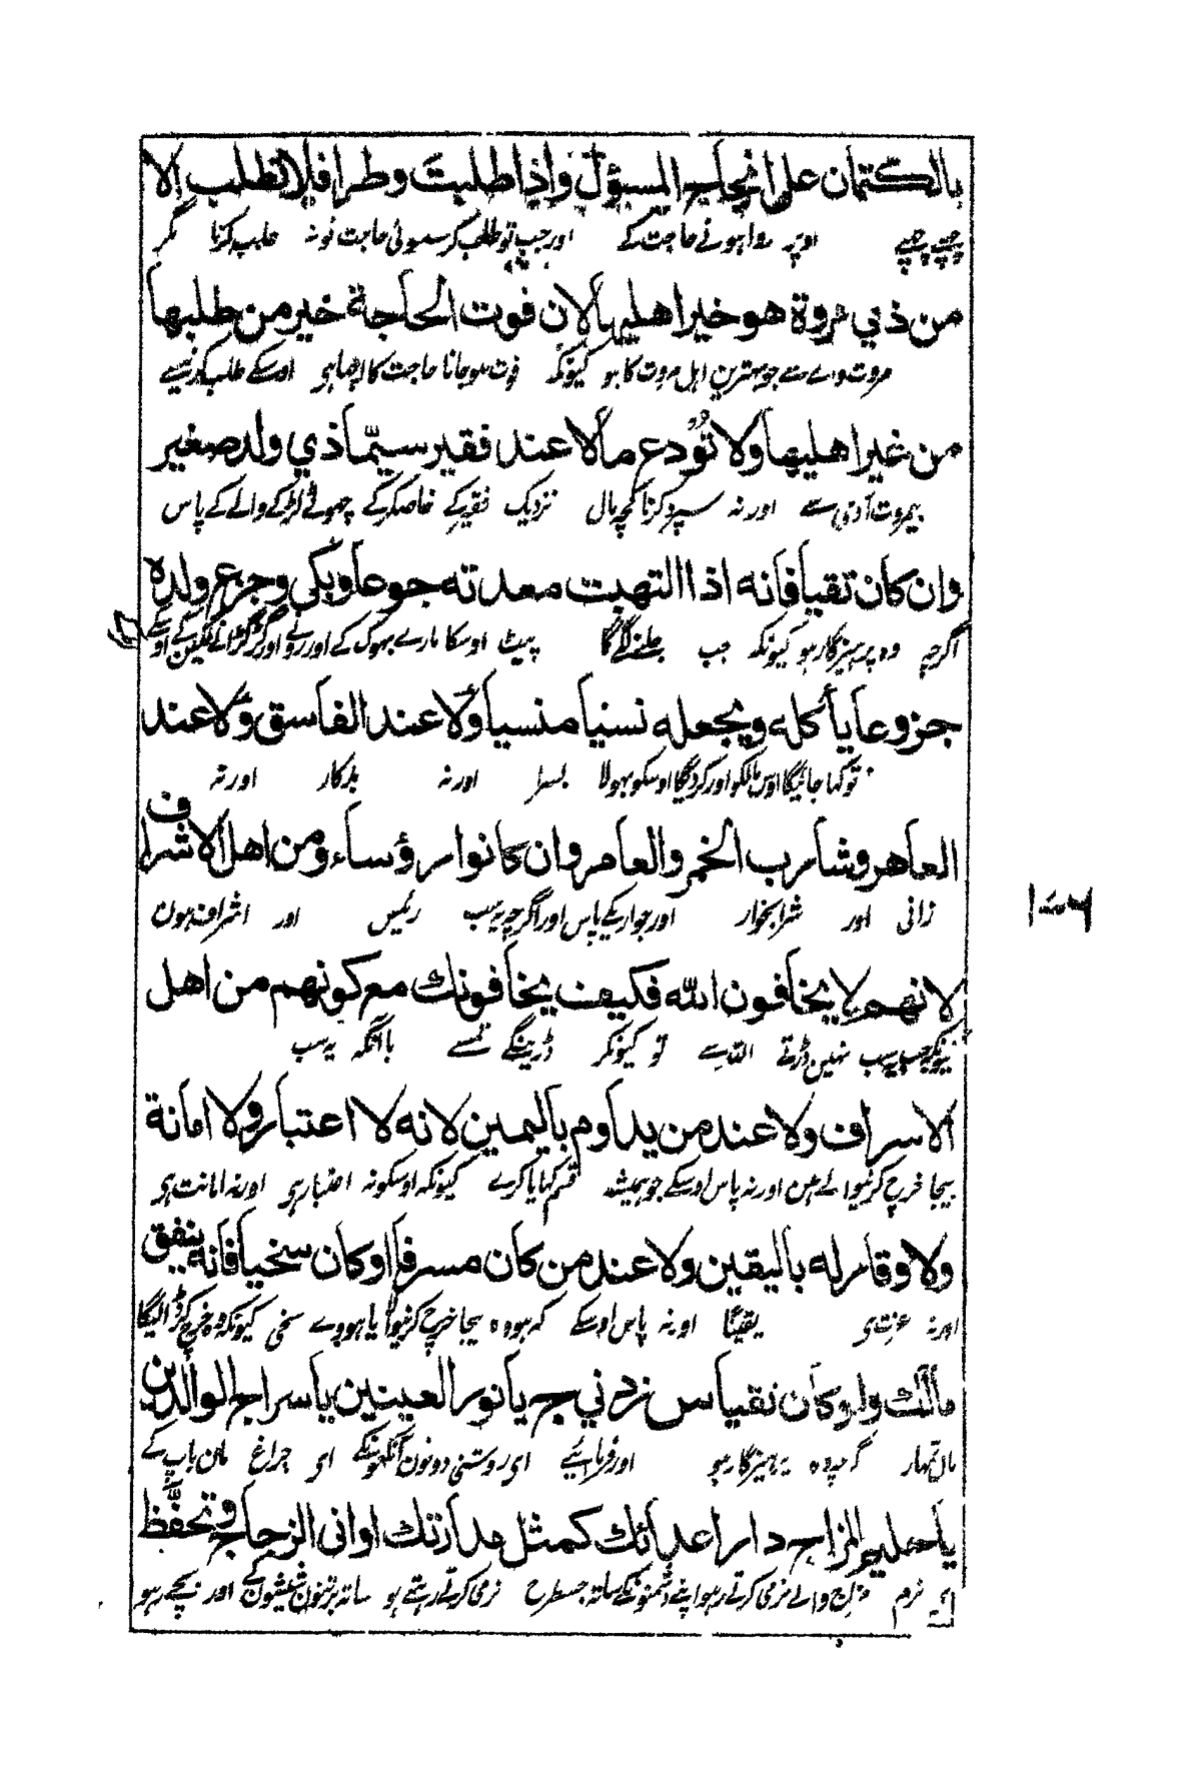 بالكتمان على انجاح المسؤل واذا طلبت وطرا فلا تطلب الا
چھپے چھپے اوپر روا ہونے حاجت کے اور جب تو طلب کر سے کوئی حاجت تو نہ طلب کرنا مگر
من ذي مروة هو خير اهليها لان فوت الحاجة خير من طلبها
مروت والے سے جو بہترین اہل مروت کا ہو کیونکہ فوت ہو جانا حاجت کا اچھا ہی اوسکے طلب کرنیسے
من غير اهليها ولا تودع مالا عند فقير سيما ذي ولد صغير
بیمروت آدمی سے اور نہ سپرد کرنا کچھ مال نزدیک فقیر کے خاصکر کے چھوٹے لڑکے والے کے پاس
وان كان تقيا فانه اذا التهبت معدته جوعا وبكى وجزع ولده
اگرچہ وہ پرہیزگار ہو کیونکہ جب جلنے لگے گا پیٹ اوسکا مارے بھوک کے اور رونے اور گڑگڑانے لگینگے
جزوعا يأكله ويجعله نسيا منسيا ولا عند الفاسق ولا عند
تو کہا جائیگا اوس مالکو اور کردیگا اوسکو بھولا بسرا اور نہ بدکار اور نہ
العاهر وشارب الخمر والعامر وان كانوا رؤساء ومن اهل الاشراف
زانی اور شرابخوار اور جوارے کے پاس اور اگرچہ یہ سب رئیس اور اشراف ہون
لانهم لا يخافون الله فكيف يخافونك مع كونهم من اهل
کیونکہ جب یہ سب نہین ڈرتے اللہ سے تو کیونکر ڈرینگے تمسے باآنکہ یہ سب
الاسراف ولا عند من يداوم باليمين لانه لا اعتبار ولا امانة
بیجا خرچ کرنیوالے ہین اور نہ پاس اوسکے جو ہمیشہ قسم کہایا کرے کیونکہ اوسکو نہ اعتبار ہی اور نہ امانت ہی
ولا وقار له باليقين ولا عند من كان مسرفا او كان سخيا فانه ينفق
اور نہ عزت ہی یقیناً اور نہ پاس اوسکے کہ ہو وہ بیجا خرچ کرنیوالا یا ہووے سخی کیونکہ وہ خرچ کر ڈالیگا
مالك ولو كان نقيا س زدني ج يا نور العينين يا سراج الوالدين
مال تمہارا گو وہ پرہیزگار ہو اور فرمائیے ای روشنی دونون آنکھونکے ای چراغ مان باپ کے
يا حليم المزاج دار اعدائك كمثل مدارتك اوانى الزجاج وتحفظ
ای نرم مزاج والے نرمی کرتے رہو اپنے دشمنونکے ساتھ جسطرح نرمی کرتے رہتے ہو ساتھ برتنون شیشون کے اور بچے رہو